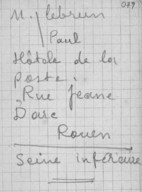 079
M. Lebrun
Paul
Hôtele de la
Poste.
Rue Jeanne
Darc
Rouen
Seine Inférieure